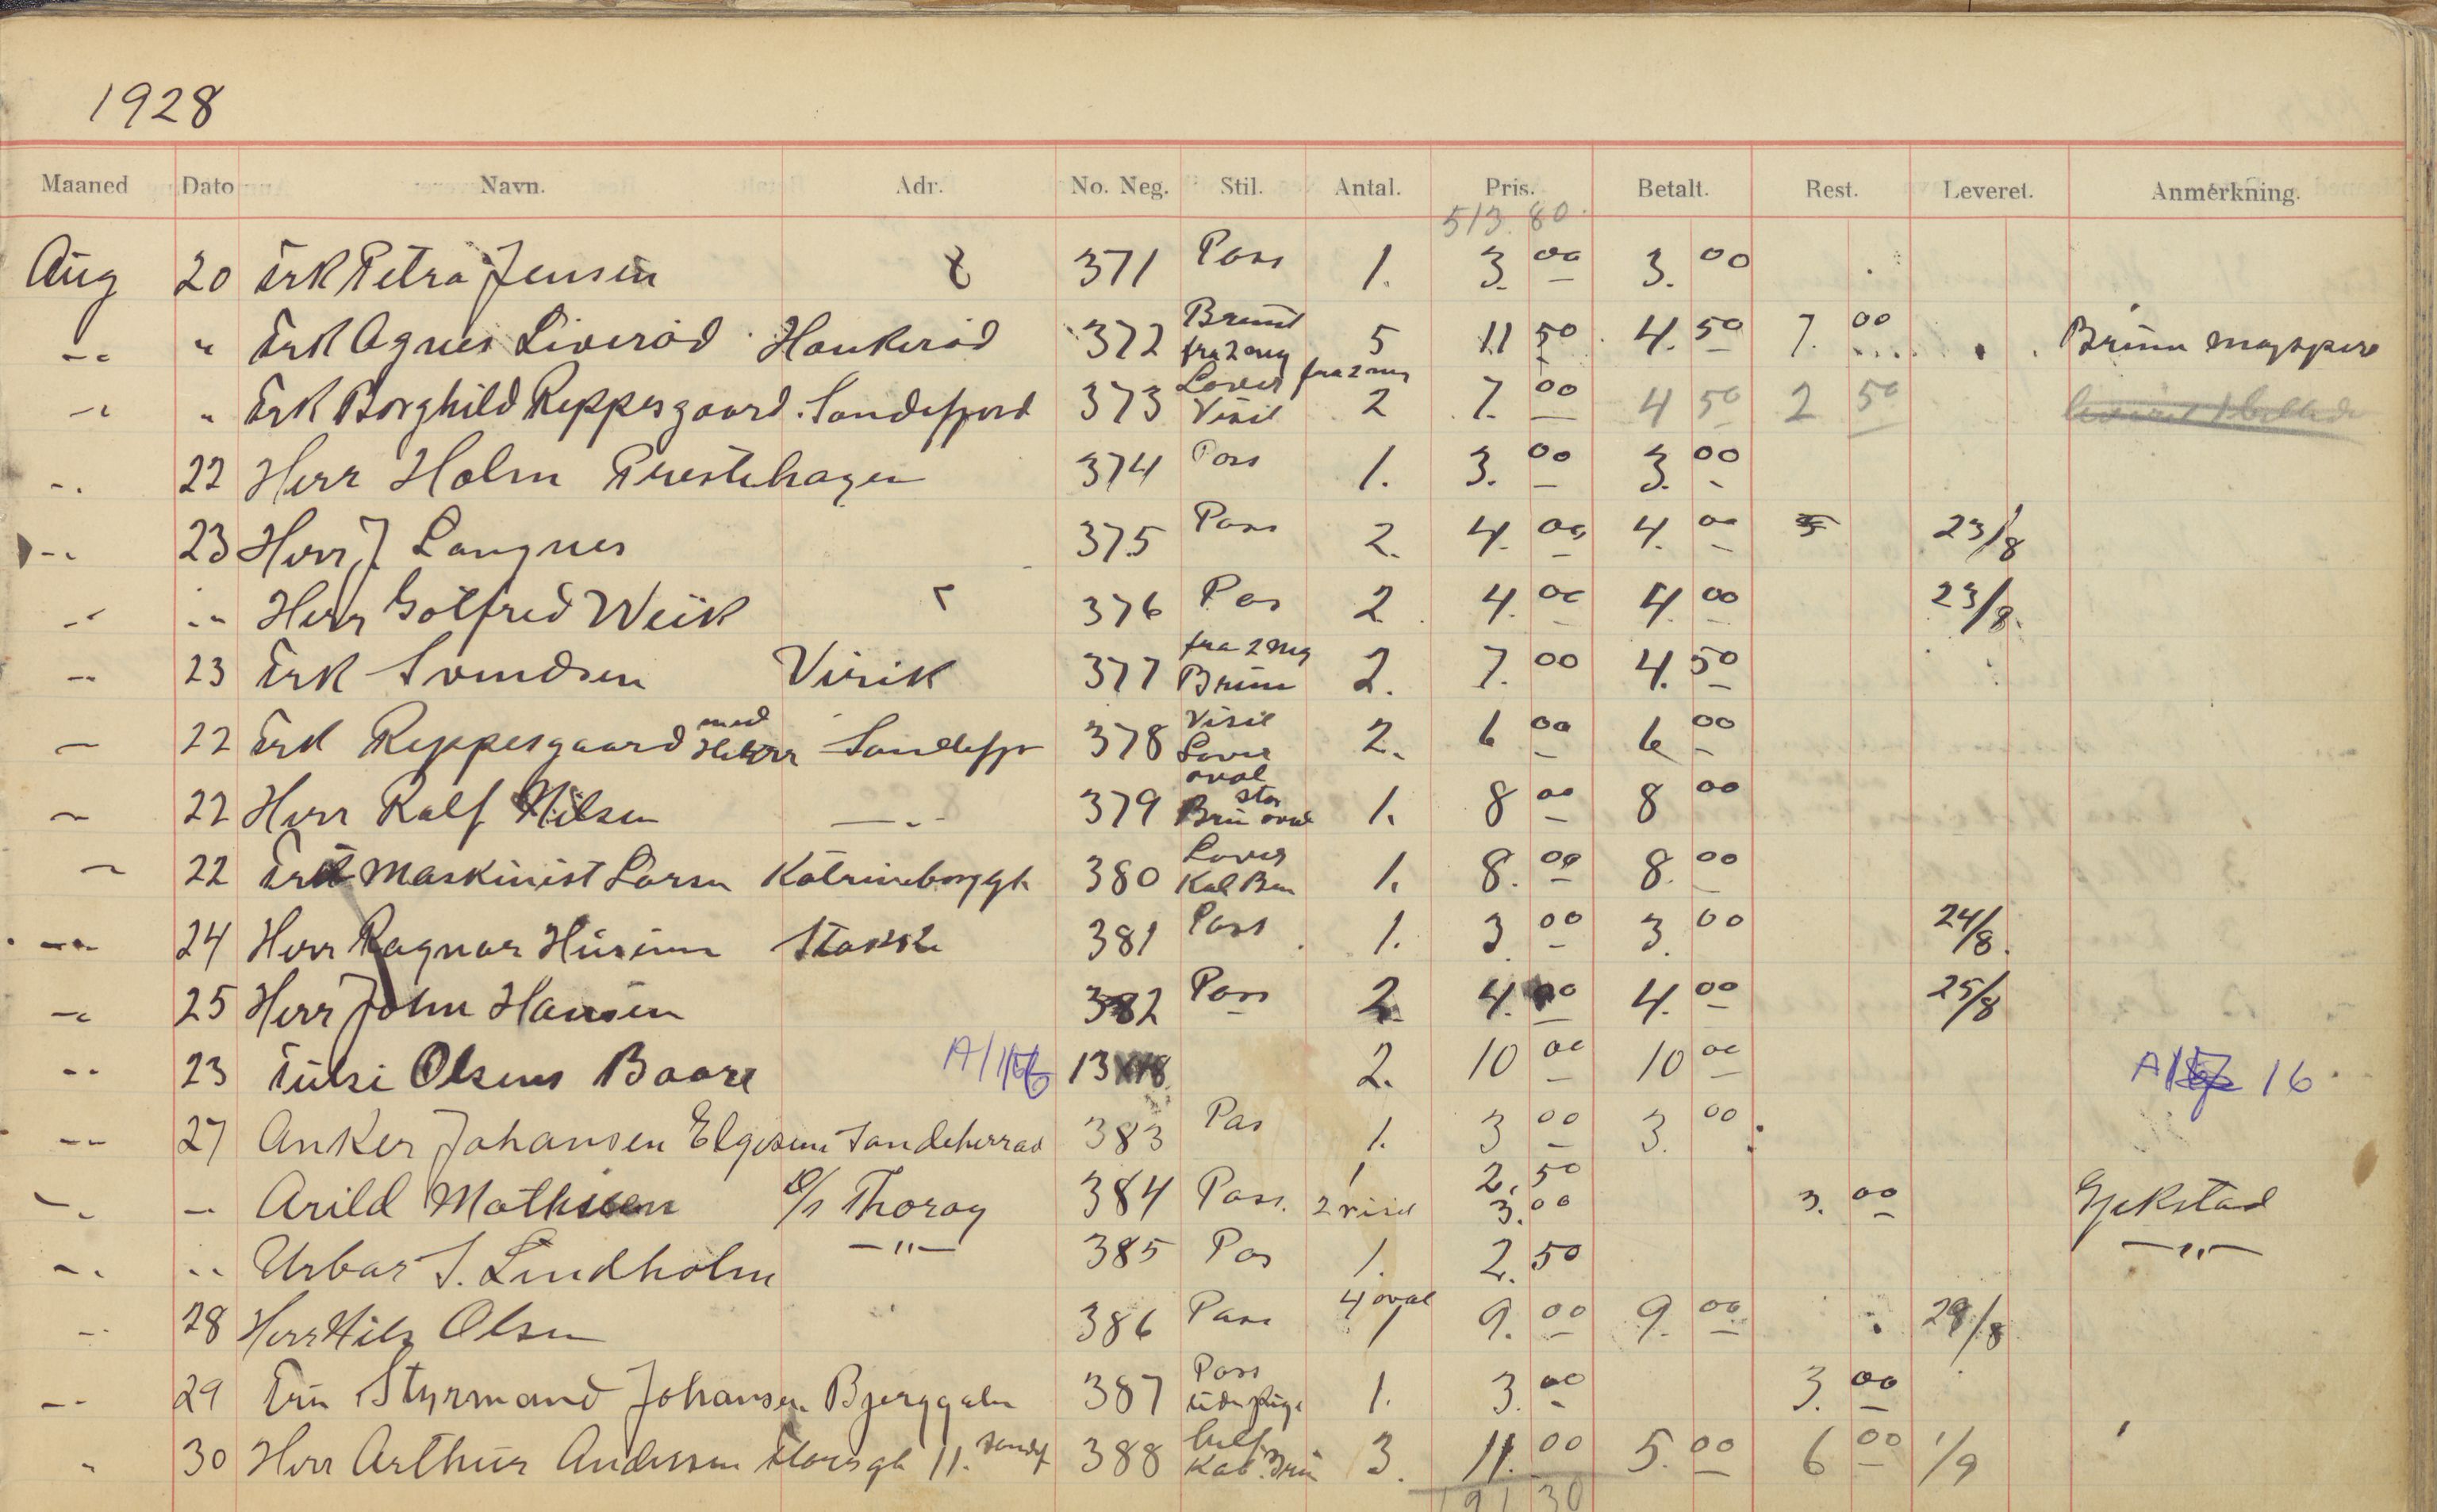 1928
Maaned Dato Navn. Adr. No. Neg. Stil. Antal. Pris. Betalt. Rest. Leveret. Anmerkning.
513.80
Aug 20 Frk Petra Jensen 371 Pass 1. 3.00 3.00
-"- " Frk Agnes Liverød Haukerød 372 Brun fra 2 neg 5 11 50 4.50 7.00 Brun
-"- " Frk Borghild Reppesgaard. Sandefjord 373 Lover Visit fra 2 neg 2 7.00 4 50 2 50
-"- 22 Herr Holm Prestehagen 374 Pass 1. 3.00 3.00
-"- 23 Herr J Langnes 375 Pass 2. 4.00 4.00 23/8
-"- -"- Herr Gotfred Weik 376 Pas 2 4.00 4.00 23/8.
-"- 23 Frk Svendsen Virik 377 fra 2 neg Brun 2. 7.00 4.50
- 22 Frk Reppesgaard med Herr Sandefj 378 Visit Lover oval 2. 6 00 6 00
- 22 Herr Ralf Nilsen -"- 379 stor Brun oval 1. 8 00 8 00
- 22 Maskinist Larsen 380 Lover Kab Brun 1. 8.00 8.00
-"- 24 Herr Ragnar Stokke 381 Pass 1. 3.00 3.00 24/8.
-"- 25 Herr John Hansen 382 Pass 2 4.00 4.00 25/8
-"- 23 Olsens Baare 13 2. 10 00 10 00 16
-"- 27 Anker Johansen Elgesem Sandeherrad 383 Pas 1. 3 00 3.00
-"- - Arild Mathisen D/S Thorøy 384 Pass. 1 2 visit 2.50 3.00 3.00 Gjekstad
-"- -"- Urbar S. Lindholm -"- 385 Pas 1. 2.50 -"-
-"- 28 Herr Nils Olsen 386 Pass 4 oval 1 9.00 9.00 29/8
-"- 29 Fru Styrmand Johansen Bjerggaten 387 Pass 1. 3.00 3.00
" 30 Herr Arthur Andersen 11. Sandef 388 Kab. Brun 3. 11.00 5.00 6 00 1/9
191 30